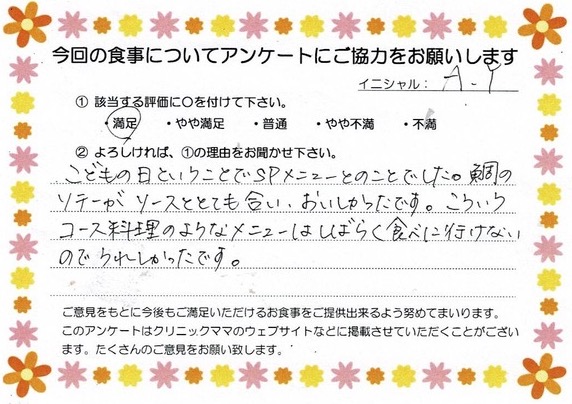 今回の食事についてアンケートにご協力をお願いします
イニシャル： A.Y
① 該当する評価に〇を付けて下さい。
・満足 ・やや満足 ・普通 ・やや不満 ・不満
② よろしければ、①の理由をお聞かせ下さい。
こどもの日ということでSPメニューとのことでした。鯛の
ソテーが ソースととても合い、おいしかったです。こういう
コース料理のようなメニューはしばらく食べに行けない
のでうれしかったです。
ご意見をもとに今後もご満足いただけるお食事をご提供出来るよう努めてまいります。
このアンケートはクリニックママのウェブサイトなどに掲載させていただくことがござい
ます。たくさんのご意見をお願い致します。